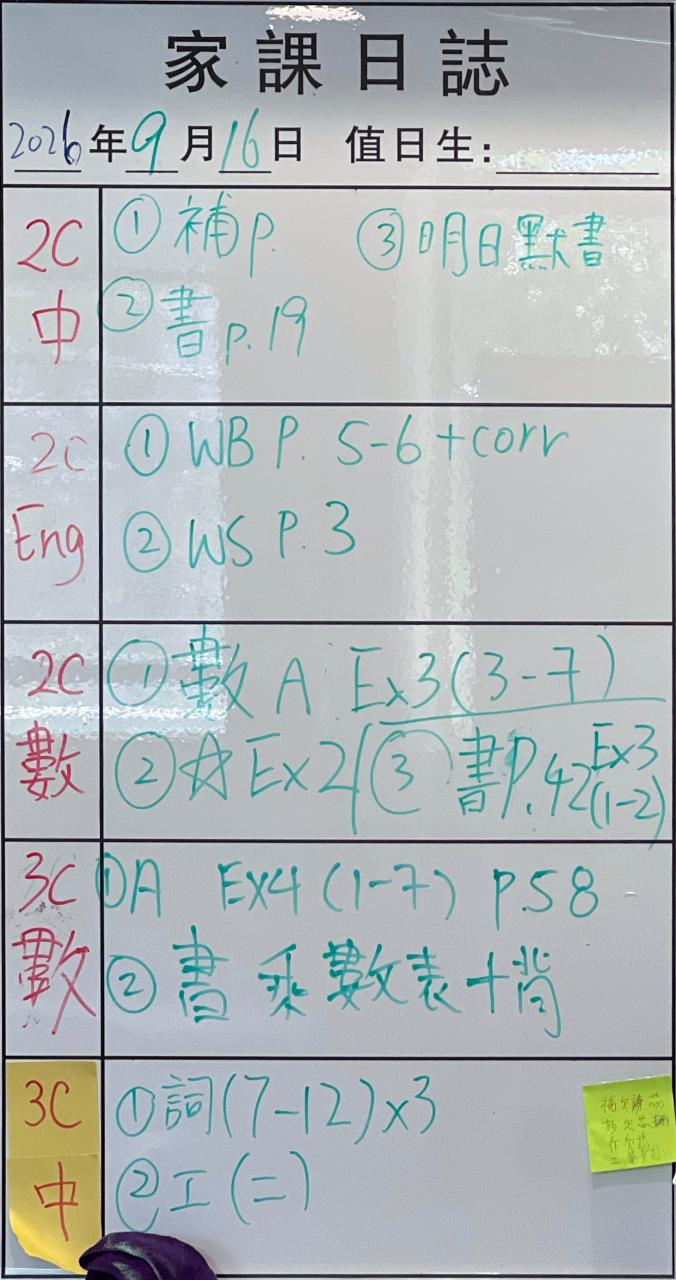 家課日誌
2026年9月16日 值日生：
2C
中
①補p. ③明日默書
②書p.19
2C
Eng
①WB P. 5-6+corr
②WS P.3
2C
數
①數A Ex3(3-7)
②☆Ex2 ③書P.42 Ex3
(1-2)
3C
數
①A EX4(1-7) P.58
②書 乘數表+背
3C
中
①詞(7-12)x3
②工(二)
補欠
欠
作欠